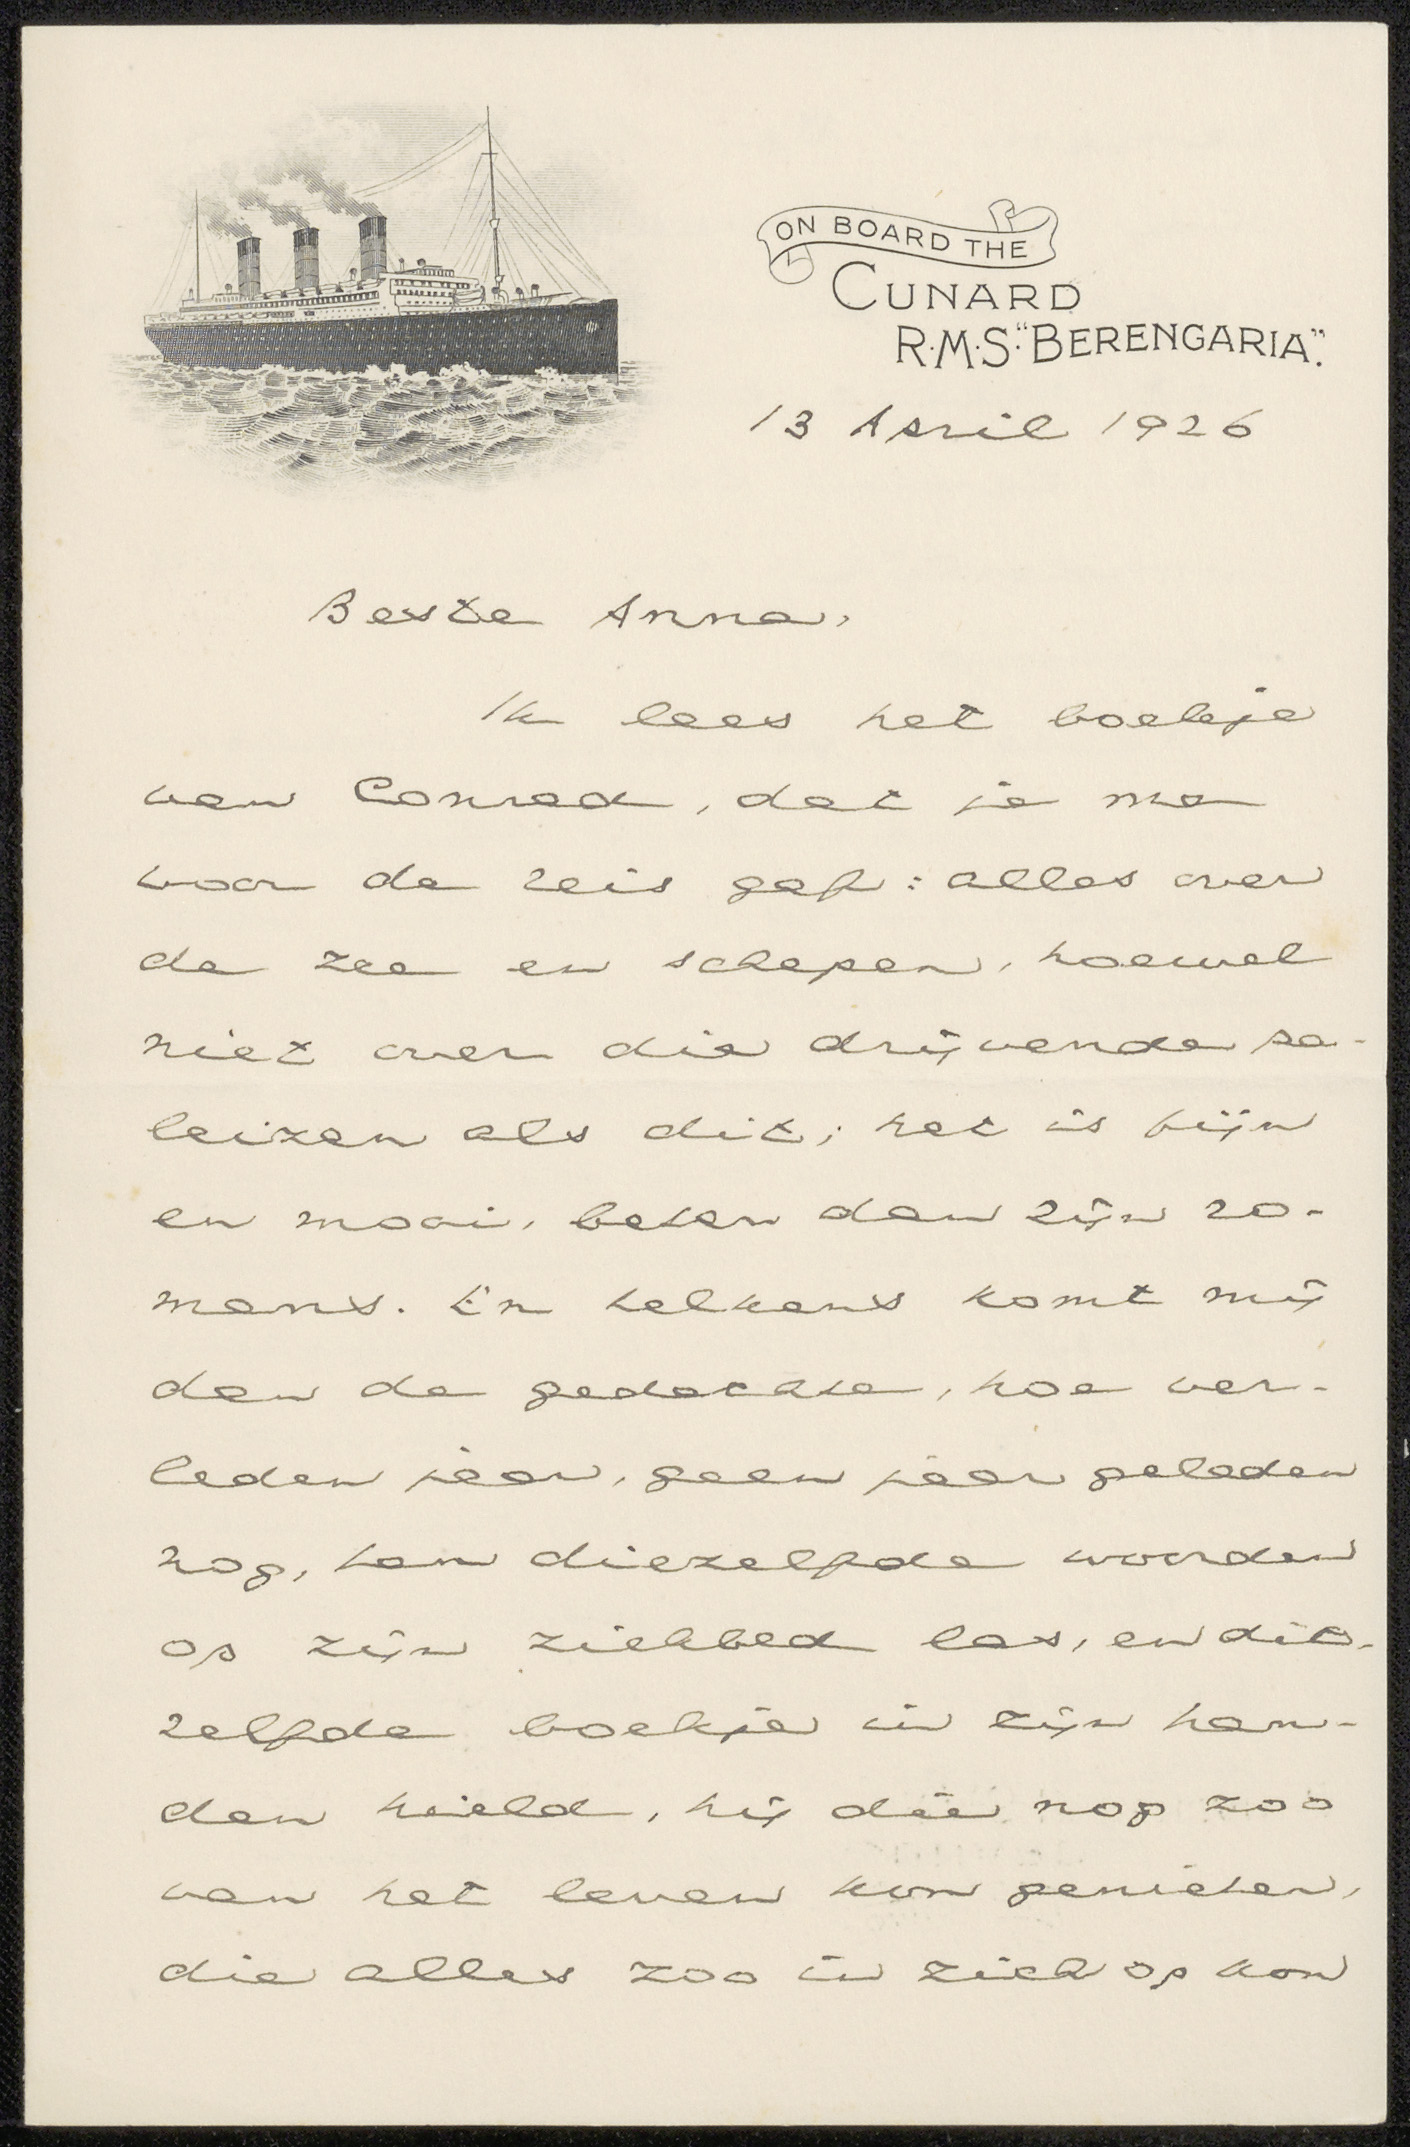 ON BOARD THE
CUNARD
R·M·S·"BERENGARIA".
13 April 1926
Beste Anna,
Ik lees het boekje
van Conrad, dat je me
voor de reis gaf: alles over
de zee en schepen, hoewel
niet over die drijvende pa-
leizen als dit; het is fijn
en mooi, beter dan zijn ro-
mans. En telkens komt mij
dan de gedachte, hoe ver-
leden jaar, geen jaar geleden
nog, Jan diezelfde woorden
op zijn ziekbed las, en dit-
zelfde boekje in zijn han-
den hield, hij die nog zoo
van het leven kon genieten,
die alles zoo in zich op kon